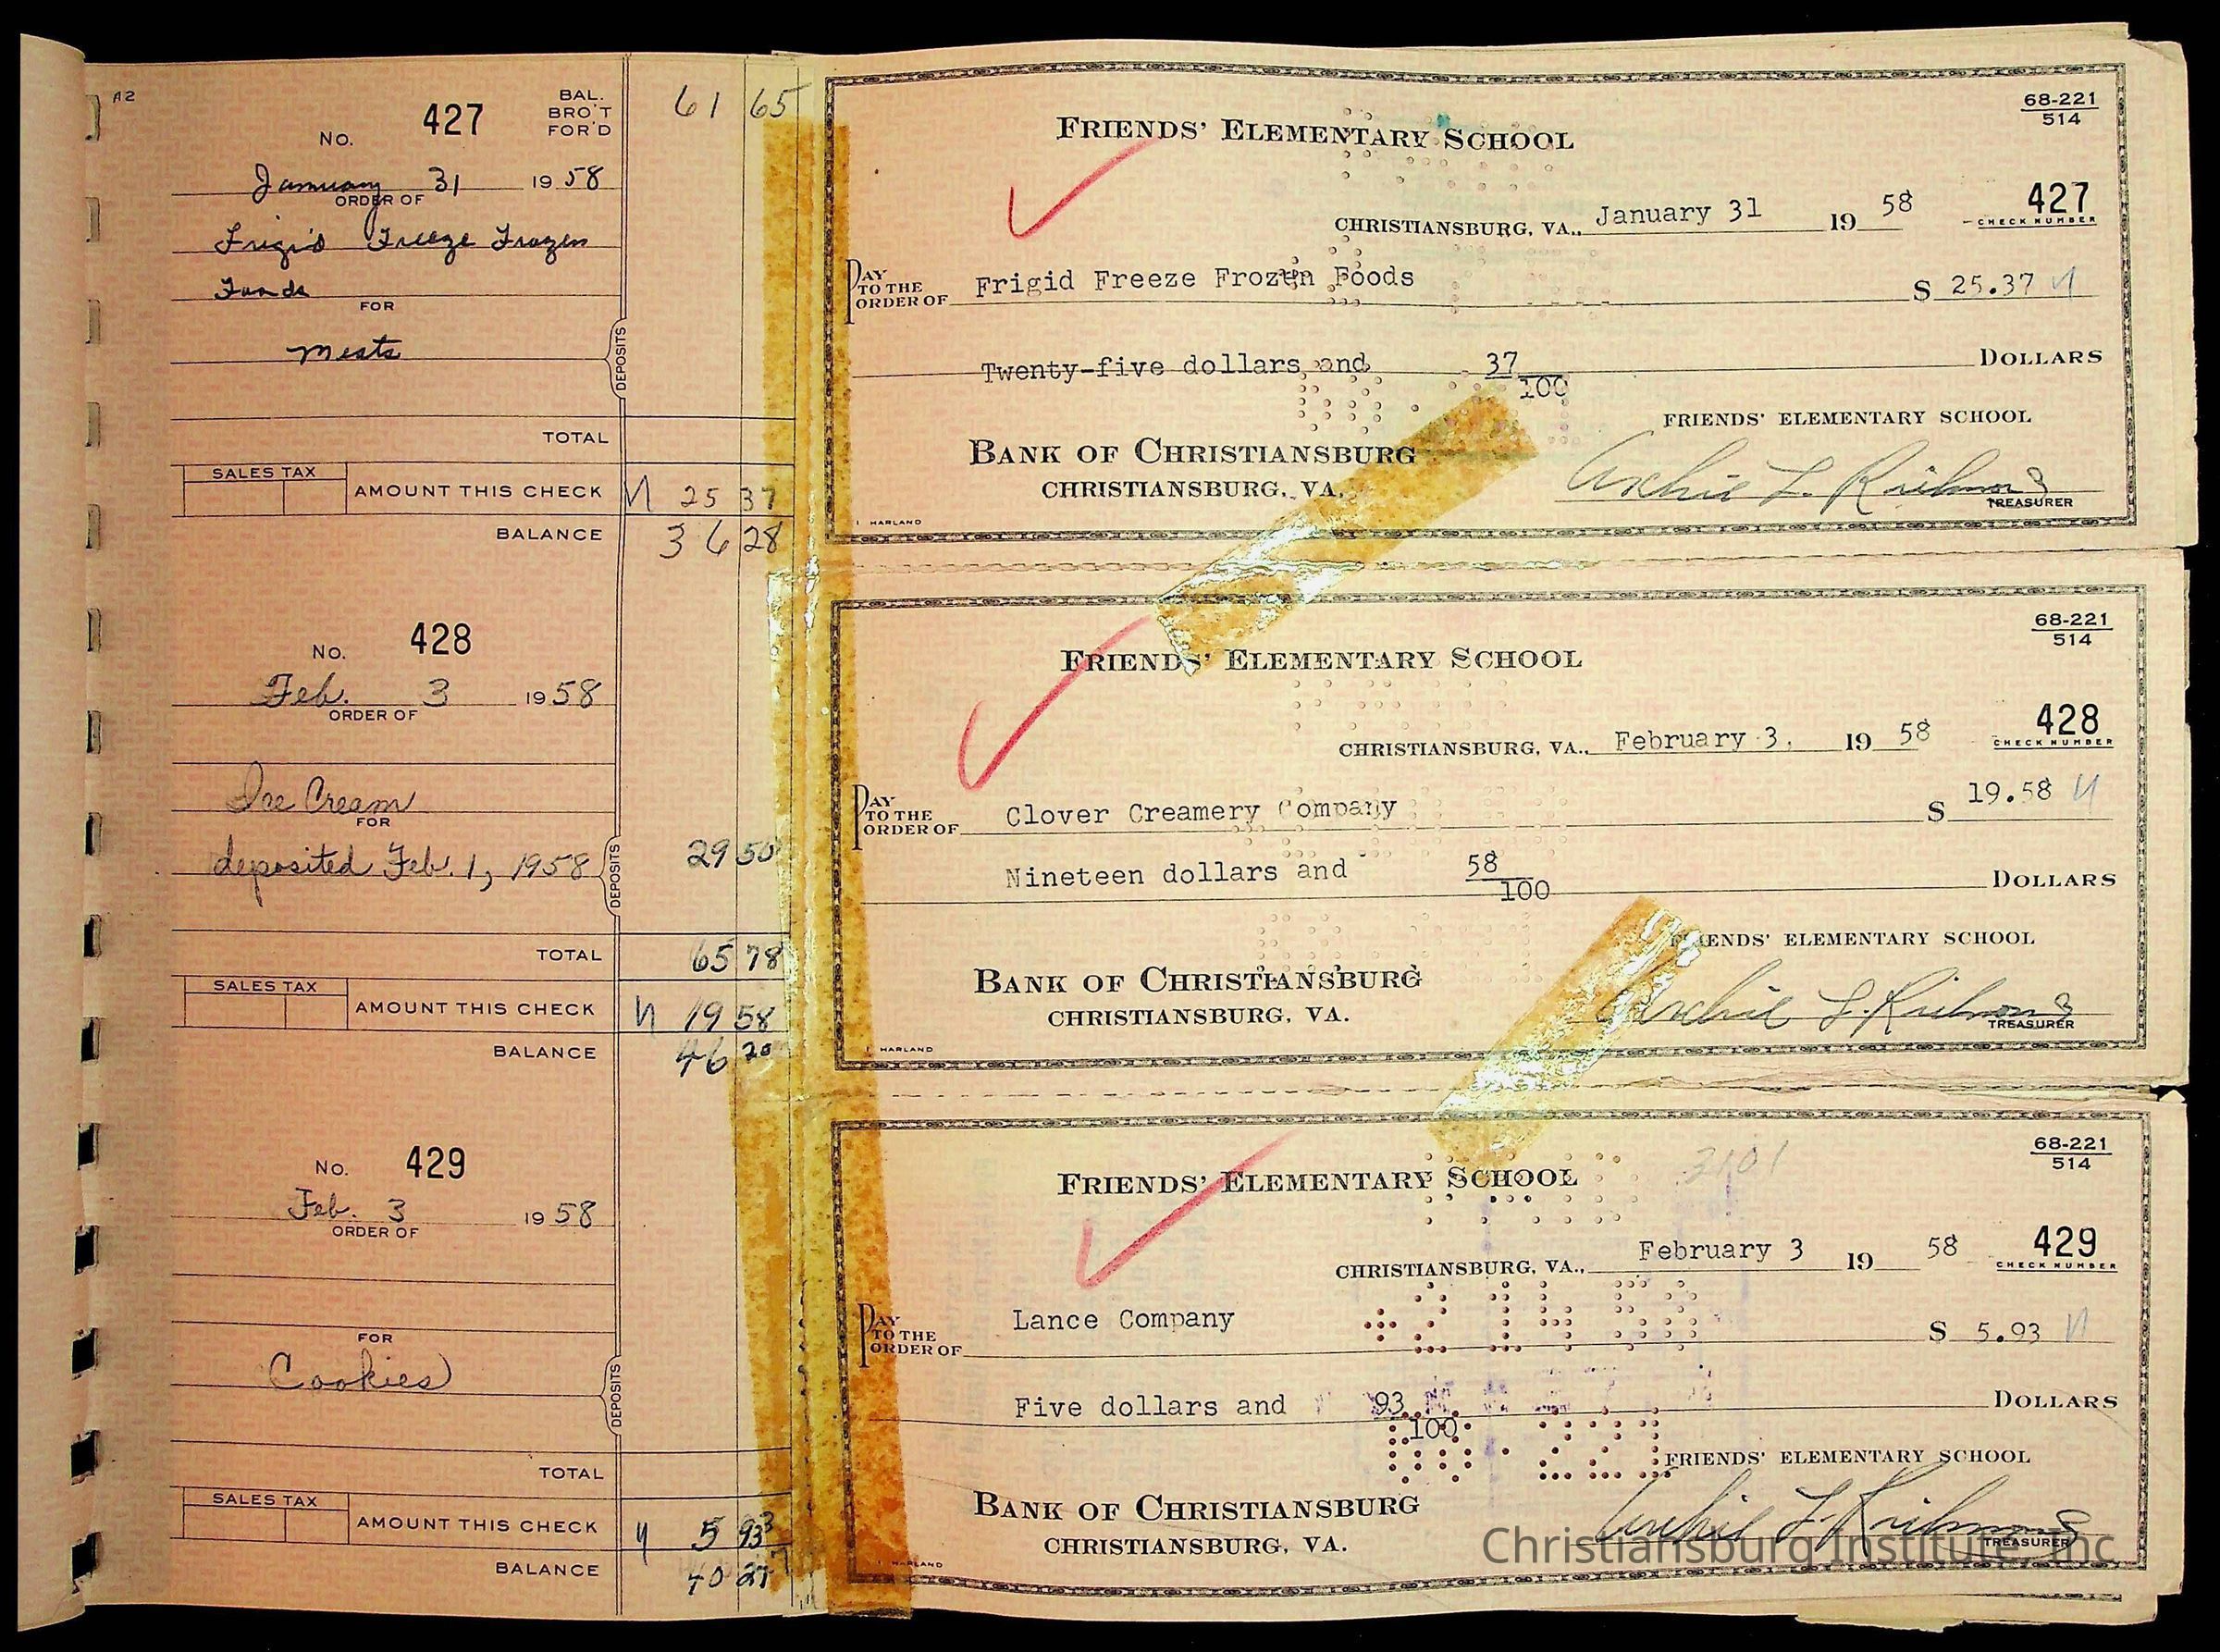 A2
No. 427 BAL. BRO'T FOR'D 61 65
January 31 1958
ORDER OF
Frigid Freeze Frozen
Foods
FOR
Meats
DEPOSITS
TOTAL
SALES TAX
AMOUNT THIS CHECK 25 37
BALANCE 36 28
FRIENDS' ELEMENTARY SCHOOL
68-221
514
CHRISTIANSBURG, VA., January 31 19 58
427
CHECK NUMBER
PAY TO THE ORDER OF Frigid Freeze Frozen Foods $ 25.37
Twenty-five dollars and 37/100 DOLLARS
FRIENDS' ELEMENTARY SCHOOL
BANK OF CHRISTIANSBURG
CHRISTIANSBURG, VA.
Archie L. Richmond
TREASURER
HARLAND
No. 428
Feb. 3 1958
ORDER OF
Ice Cream
FOR
deposited Feb. 1, 1958 DEPOSITS 29 50
TOTAL 65 78
SALES TAX
AMOUNT THIS CHECK 19 58
BALANCE 46 20
FRIENDS' ELEMENTARY SCHOOL
68-221
514
CHRISTIANSBURG, VA., February 3, 19 58
428
CHECK NUMBER
PAY TO THE ORDER OF Clover Creamery Company $ 19.58
Nineteen dollars and 58/100 DOLLARS
FRIENDS' ELEMENTARY SCHOOL
BANK OF CHRISTIANSBURG
CHRISTIANSBURG, VA.
Archie L. Richmond
TREASURER
HARLAND
No. 429
Feb. 3 1958
ORDER OF
FOR
Cookies
DEPOSITS
TOTAL
SALES TAX
AMOUNT THIS CHECK 5 93
BALANCE 40 27
FRIENDS' ELEMENTARY SCHOOL
3101
68-221
514
CHRISTIANSBURG, VA., February 3 19 58
429
CHECK NUMBER
PAY TO THE ORDER OF Lance Company $ 5.93
Five dollars and 93/100 DOLLARS
FRIENDS' ELEMENTARY SCHOOL
BANK OF CHRISTIANSBURG
CHRISTIANSBURG, VA.
Archie L. Richmond
TREASURER
HARLAND
Christiansburg Institute, Inc